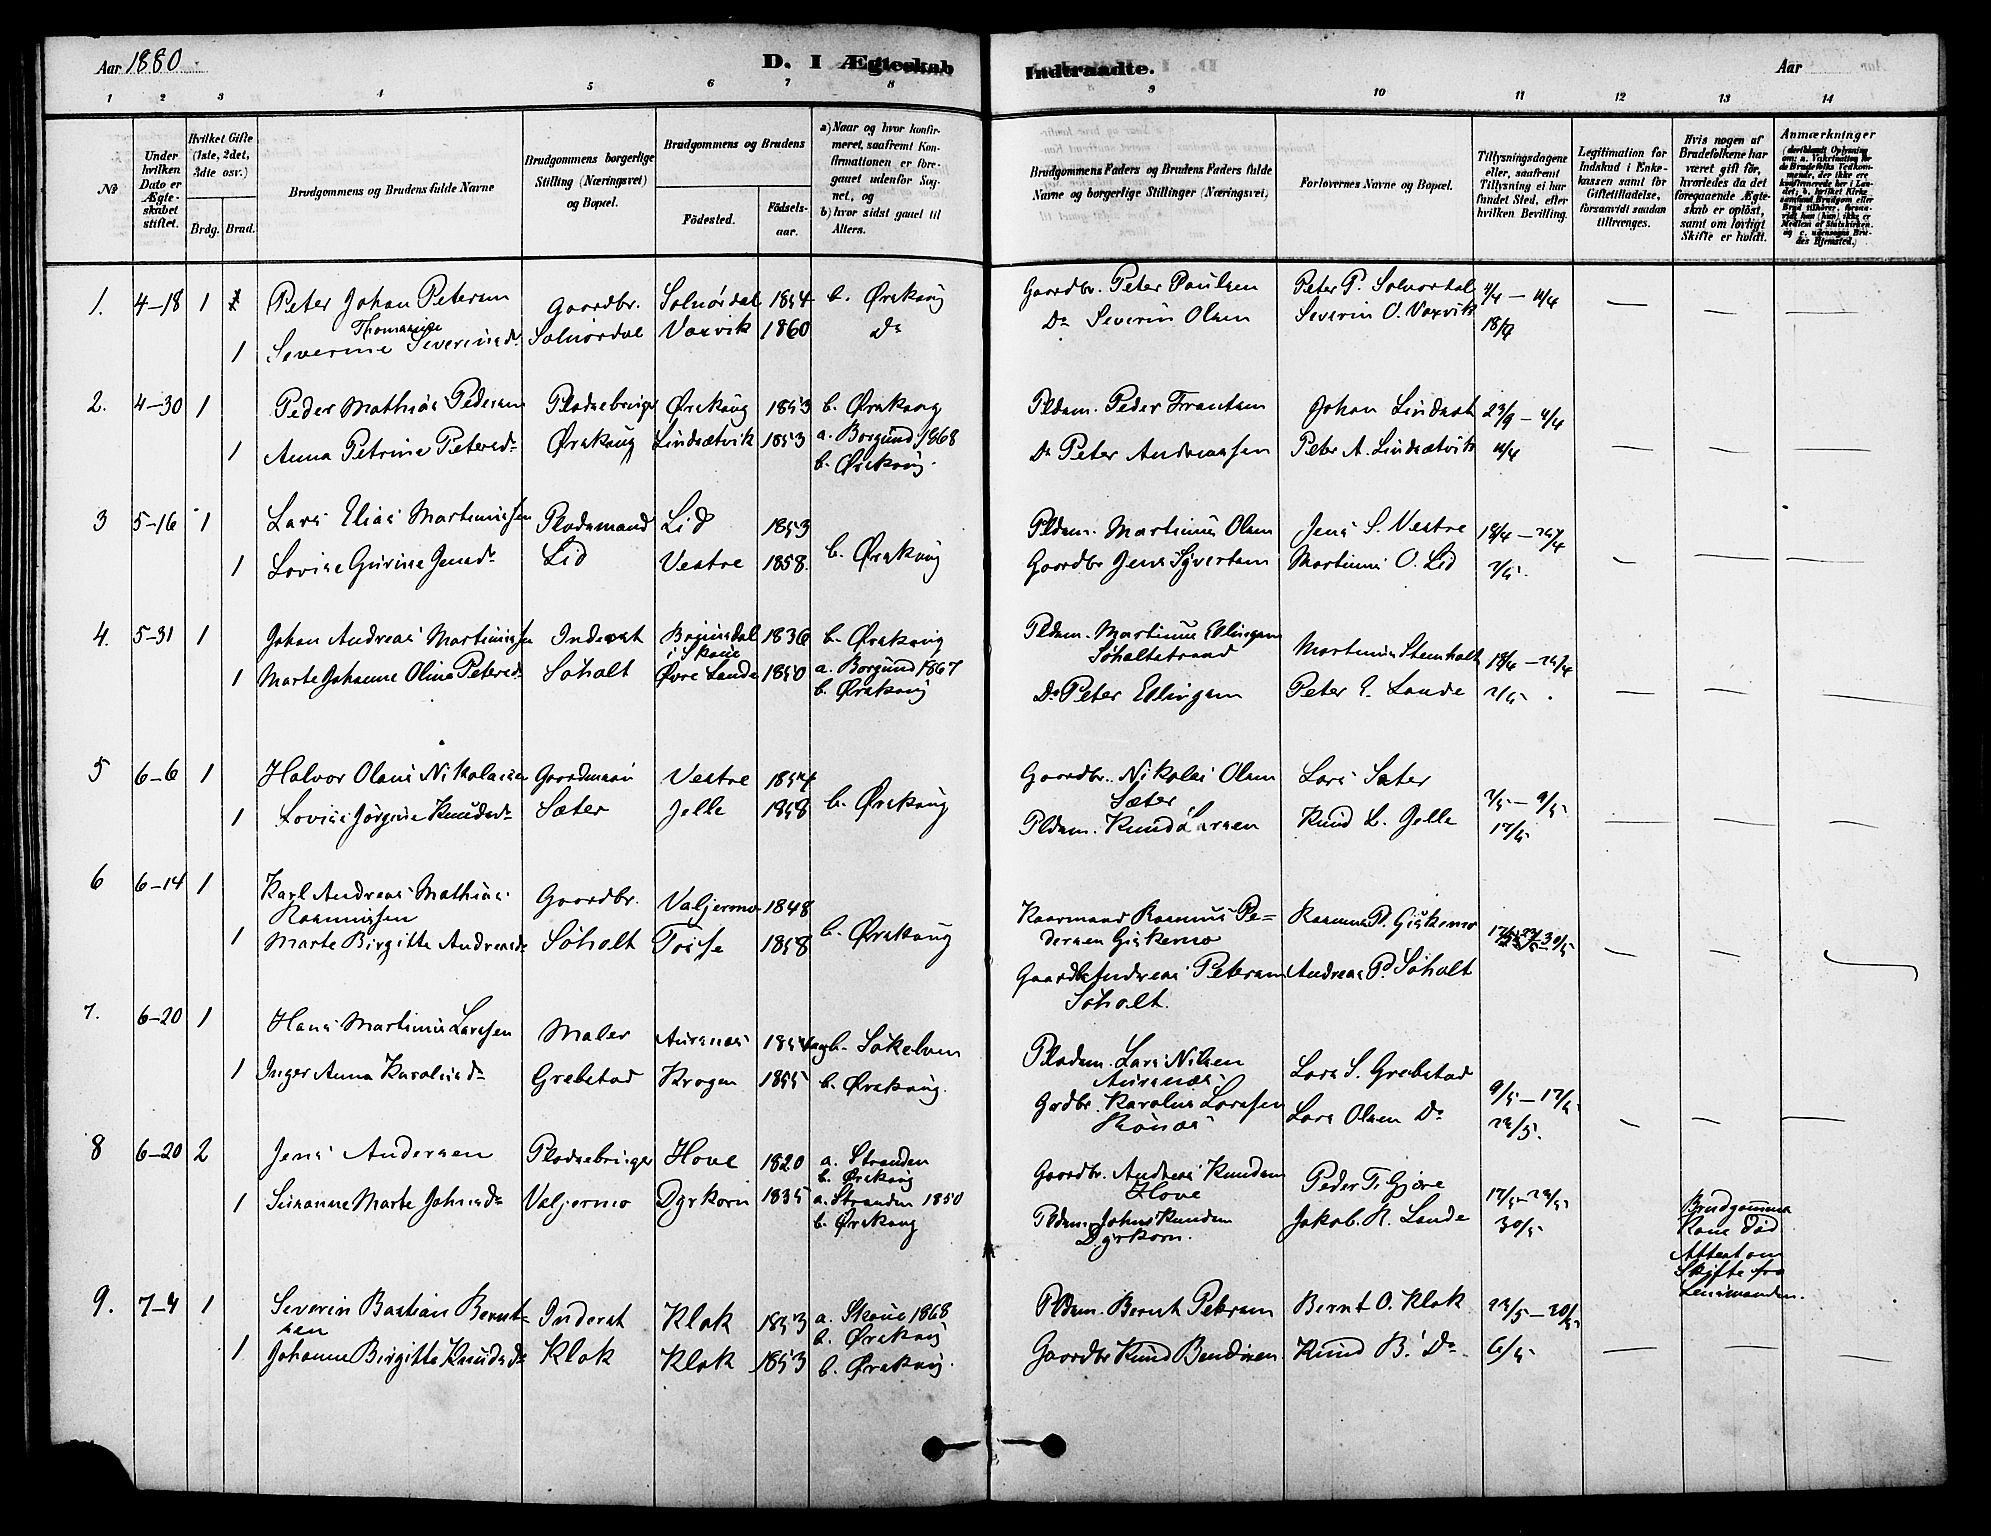 Aar 1880.
D. I Ægteskab
Indtraadte.
Aar
1 2 3 4 5 6 7 8 9 10 11 12 13 14
No
Under hvilken Dato er Ægteskabet stiftet.
Hvilket Gifte (1ste, 2det, 3die osv.)
Brdg. Brud.
Brudgommens og Brudens fulde Navne
Brudgommens borgerlige Stilling (Næringsvei) og Bopæl.
Brudgommens og Brudens
Fødested.
Fødselsaar.
a) Naar og hvor konfirmeret, saafremt Konfirmationen er foregaaet udenfor Sognet, og
b) hvor sidst gaaet til Alters.
Brudgommens Faders og Brudens Faders fulde Navne og borgerlige Stillinger (Næringsvei)
Forlovernes Navne og Bopæl.
Tillysningsdagene eller, saafremt Tillysning ei har fundet Sted, efter hvilken Bevilling.
Legitimation for Indskud i Enkekassen samt for Giftetilladelse, forsaavidt saadan tiltrænges.
Hvis nogen af Brudefolkene har været gift før, hvorledes da det foregaaende Ægteskab er opløst, samt om lovligt Skifte er holdt.
Anmærkninger
1. 4-18 1 Peter Johan Petersen Gaardbr. Solnørdal 1854 b. Ørskoug Gaardbr. Peter Paulsen Peter P. Solnordal 4/4 — 11/4
1 Severine Thomasine Severinsd. Solnordal Vaxvik 1860 Do Do Severin Olsen Severin O. Vaxvik 18/4
2. 4-30 1 Peder Mathias Pedersen Pladsebruger Ørskoug 1853 b. Ørskoug Pldsm. Peder Frantsen Johan Lindset
1 Anna Petrine Petersd. Ørskoug Lindsætvik 1853 a. Borgund 1868 Do Peter Andreassen Peter A. Lindsætvik 11/4
b. Ørskoug.
3 5-16 1 Lars Elias Martinussen Pladsmand Lid 1853 Pldsm. Martinus Olsen Jens S. Vestre 18/4 — 25/4
1 Lovise Gurine Jensd. Lid Vestre 1858. b. Ørskoug Gaardbr Jens Syvertsen Martinus O. Lid 2/5.
4. 5-31 1 Johan Andreas Martinussen Inderst 1836 b. Ørskoug Pldsm. Martinus Ellingsen
i Skoue Søholtstrand
1 Marte Johanne Oline Petersd. Søholt Øvre Lande 1850 a. Borgund 1867
b. Ørskoug Do Peter Ellingsen Peter E. Lande 2/5
5 6-6 1 Halvor Olaus Nikolaisen Gaardmann Vestre 1854 Gaardbr. Nikolai Olsen Lars Sæter
1 Lovise Jørgine Knudsd. Sæter Jelle 1858 b. Ørskoug Sæter 2/5 — 9/5
Pldsm. Knud Larsen Knud L. Jelle 17/5
6 6-14 1 Karl Andreas Mathias Gaardbr. Valjermo 1848
Rasmussen Kaarmand Rasmus Pe- Rasmus P. Giskemo
1 Marte Birgitte Andreasd. Søholt 1858 b. Ørskoug dersen Giskemo
Gaardbr Andreas Petersen Andreas P. Søholt
Søholt.
7. 6-20 1 Hans Martinus Larssen Maler Aursnæs b. Søkelven Pladsm. Lars Nilsen
1 Inger Anna Karolusd. Grebstad Krogen 1855 b. Ørskoug. Aursnæs. Lars S. Grebstad 9/5 — 17/5
Grdbr. Karolus Larssen Lars Olsen Do 23/5.
8 6-20 2 Jens Andersen Pladsebruger Hove 1820 a. Stranden
b. Ørskoug Gaardbr. Andreas Knudsen Peder T. Gjøre
Hove
1 Susanne Marte Johnsd. Valjermo Dyrkorn 1835 a. Stranden 1850 17/5 - 23/5
b. Ørskoug Pldsm. Johns Knudsen Jakob. R. Lande 30/5
Dyrkorn.
Brudgommens
Kone Død
Attest om
Skifte fra
Lensmanden.
9. 7-4 1 Severin Bastian Bernt- Inderst Klok 1853 a. Skoue 1868 Pldsm. Bernt Petersen Bernt O. Klok 23/5 — 30/5
sen b. Ørskoug
1 Johanne Birgitte Knudsd. Klok Klok 1853 b. Ørskoug. Gaardbr Knud Bendixen Knud B. Do